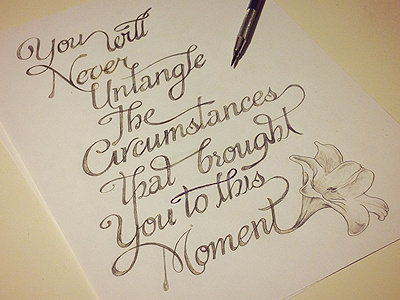 You will
Never
Untangle
The
Circumstances
That brought
You to this
Moment